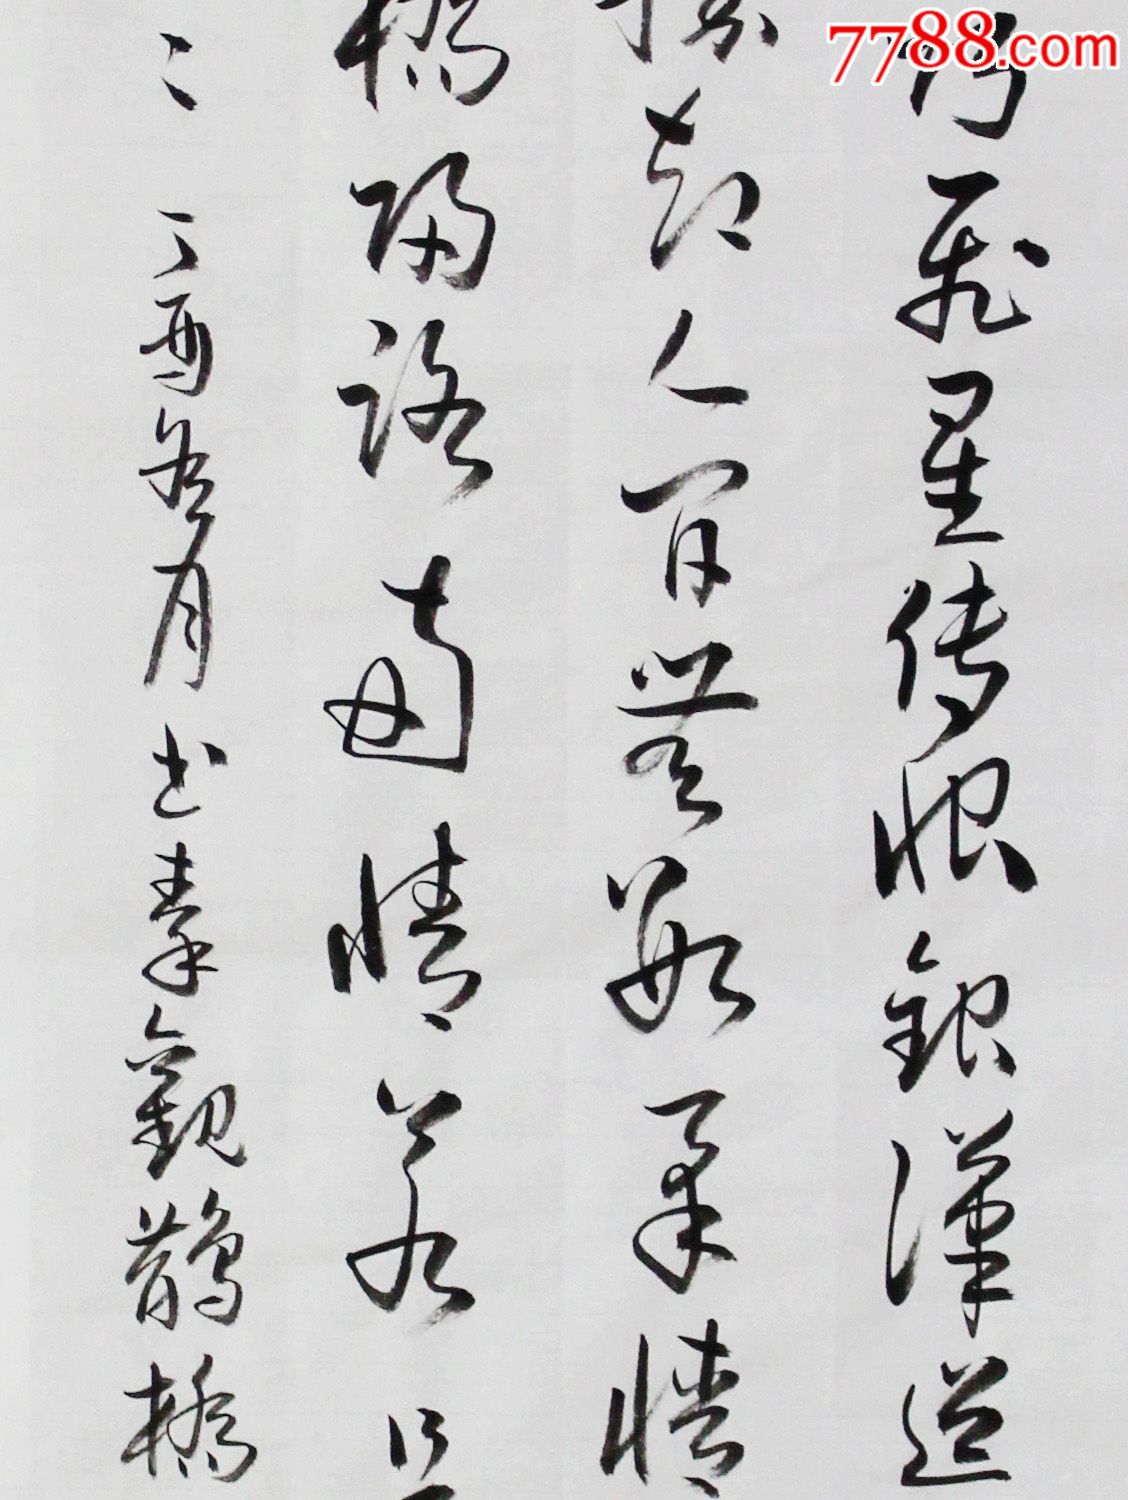 7788.com
巧飛星傳恨銀漢迢
勝却人間無數柔情
橋歸路兩情若是
〻 丁酉冬月书秦觀鵲橋